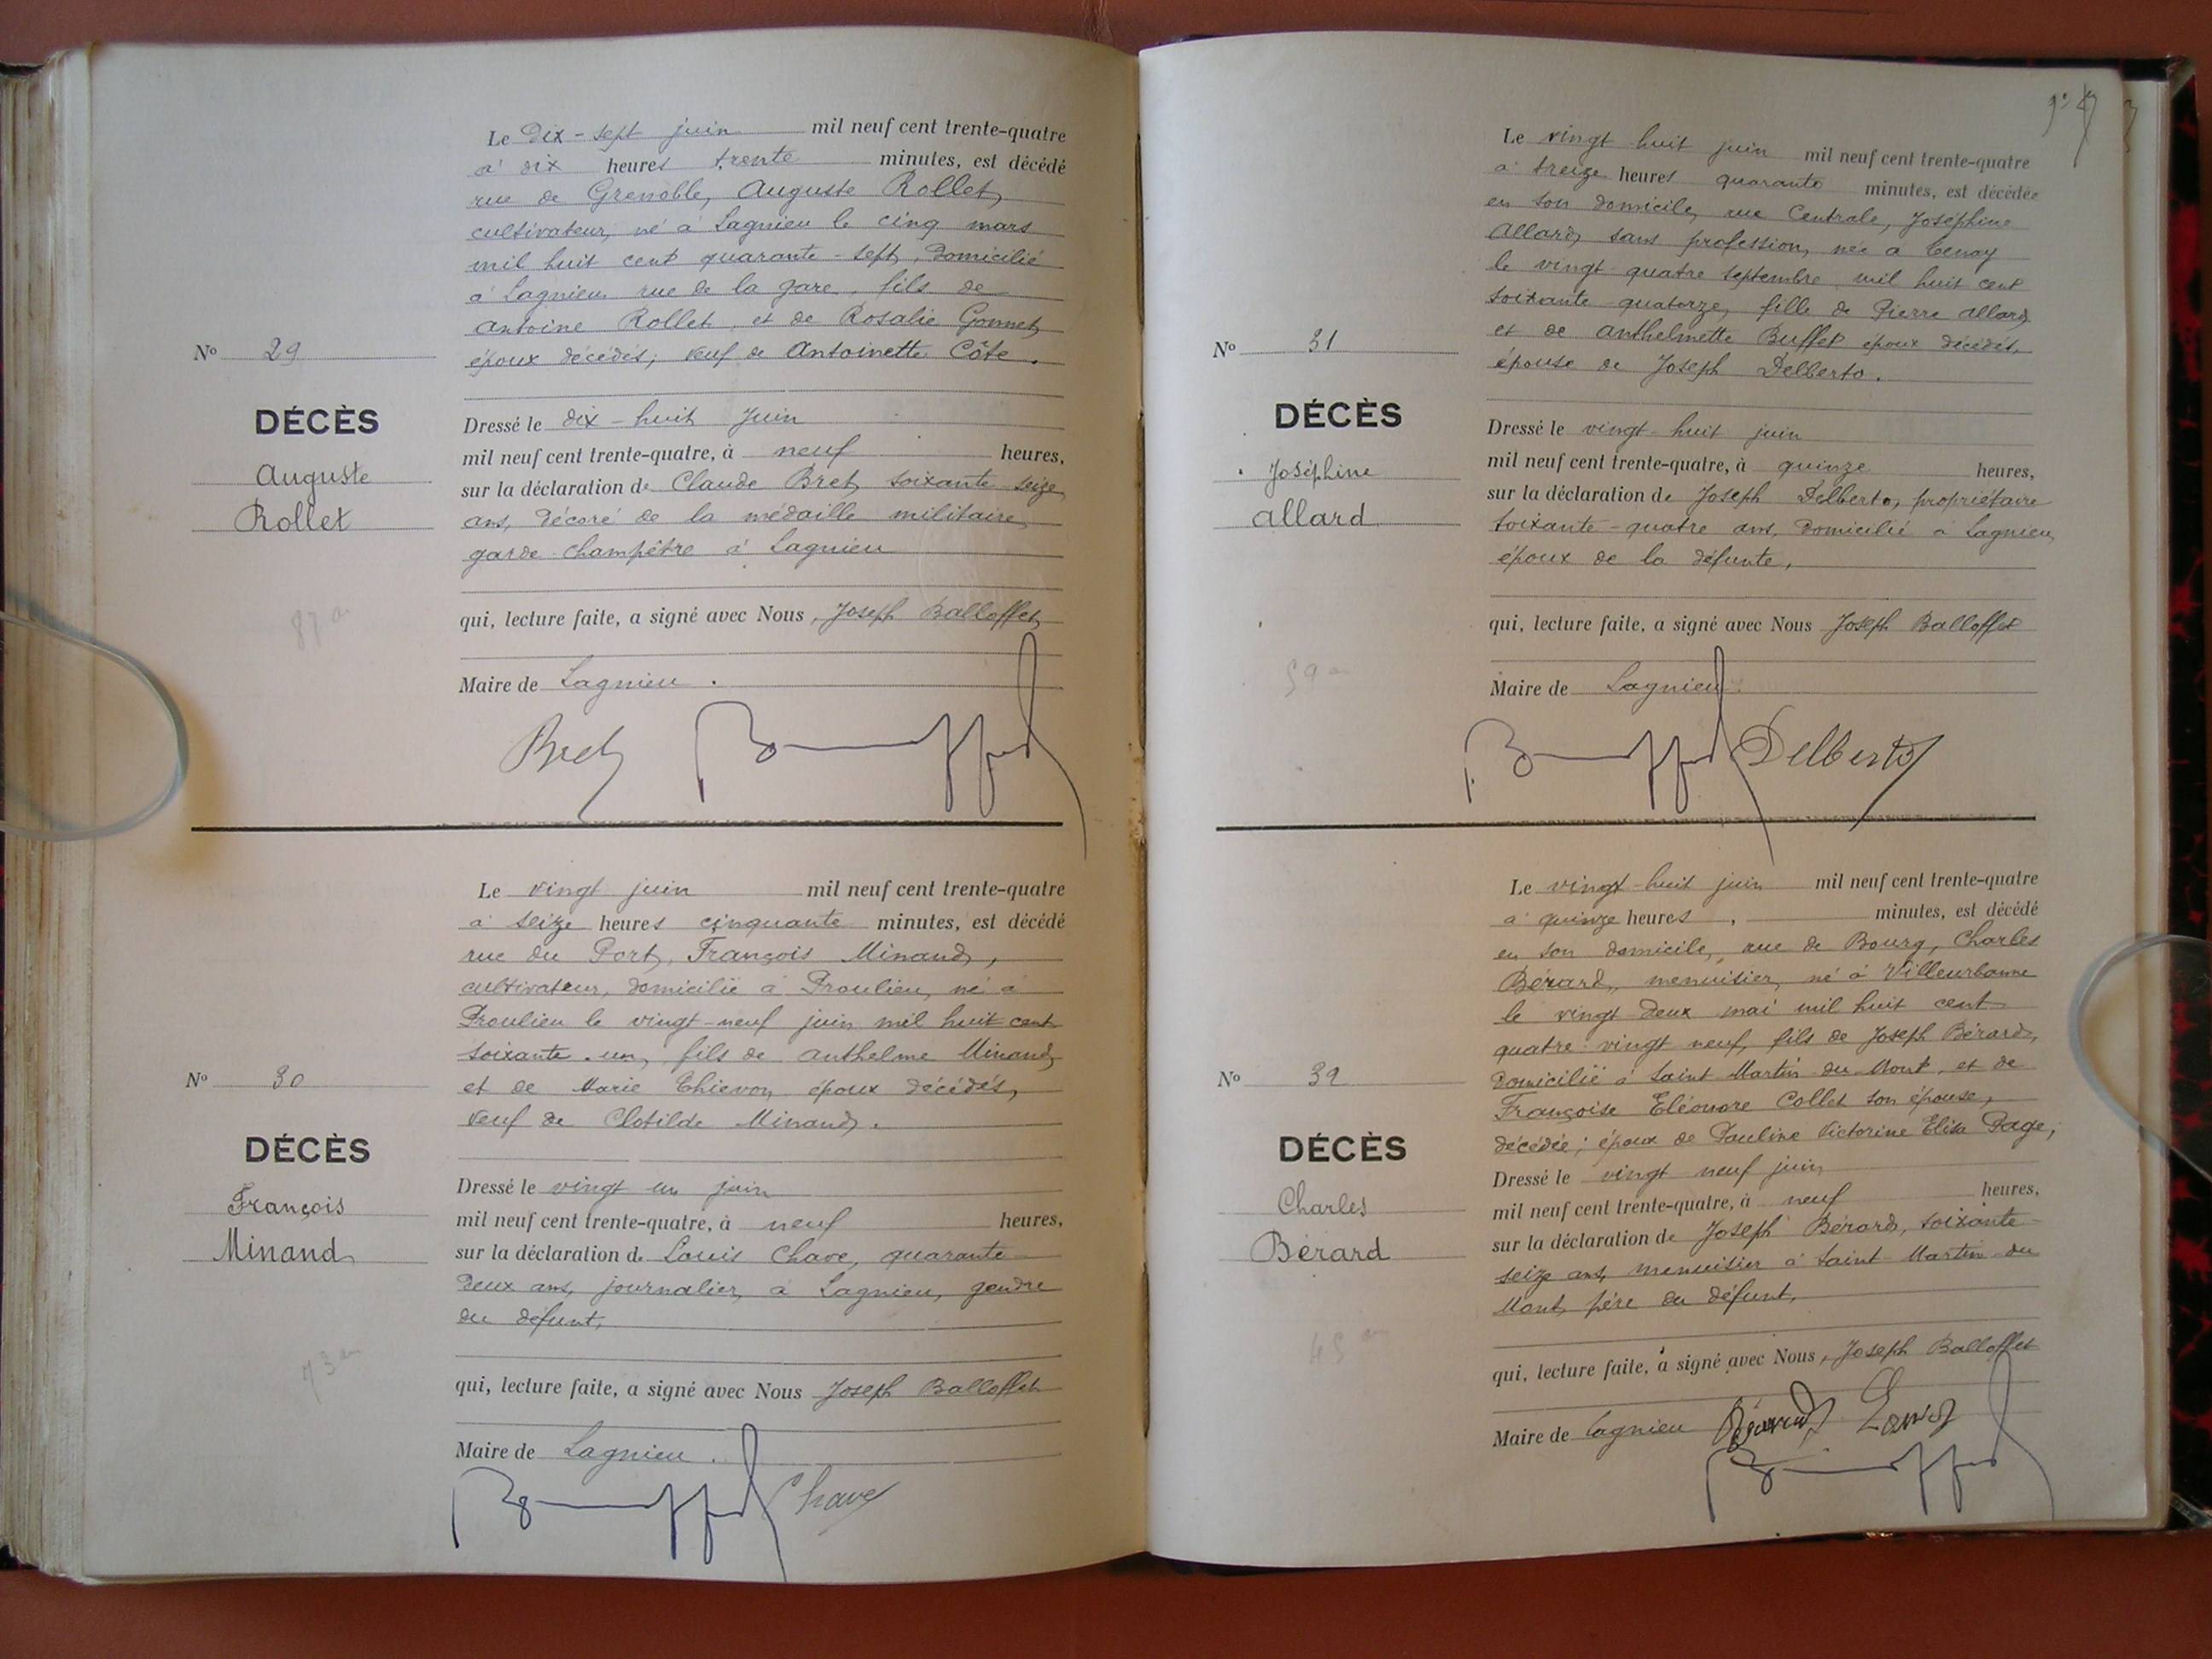 Le Dix-sept juin mil neuf cent trente-quatre
à dix heures trente minutes, est décédé
rue de Grenoble, Auguste Rollet,
cultivateur, né à Lagnieu le cinq mars
mil huit cent quarante-sept, domicilié
à Lagnieu rue de la gare, fils de
Antoine Rollet, et de Rosalie Gonnet,
époux décédés; veuf de Antoinette Côte.
No 29
DÉCÈS
Auguste
Rollet
87 a
Dressé le dix-huit Juin
mil neuf cent trente-quatre, à neuf heures,
sur la déclaration de Claude Bret, soixante seize
ans, décoré de la médaille militaire,
garde-champêtre à Lagnieu
qui, lecture faite, a signé avec Nous, Joseph Balloffet,
Maire de Lagnieu.
Bret
Le vingt juin mil neuf cent trente-quatre
à seize heures cinquante minutes, est décédé
rue du Port, François Minand,
cultivateur, domicilié à Proulieu, né à
Proulieu le vingt-neuf juin mil huit cent
soixante-un, fils de Anthelme Minand,
et de Marie Thievon, époux décédés,
veuf de Clotilde Minand.
No 30
DÉCÈS
François
Minand
73 an
Dressé le vingt un juin
mil neuf cent trente-quatre, à neuf heures,
sur la déclaration de Louis Chave, quarante
deux ans, journalier, à Lagnieu, gendre
du défunt,
qui, lecture faite, a signé avec Nous Joseph Balloffet
Maire de Lagnieu.
Chave
Le vingt huit juin mil neuf cent trente-quatre
à treize heures quarante minutes, est décédée
en son domicile, rue Centrale, Joséphine
Allard, sans profession, née à Tenay
le vingt-quatre septembre mil huit cent
soixante-quatorze, fille de Pierre Allard,
et de Anthelmette Buffet époux décédés,
épouse de Joseph Delberto.
No 31
DÉCÈS
Joséphine
Allard
59 a
Dressé le vingt-huit juin
mil neuf cent trente-quatre, à quinze heures,
sur la déclaration de Joseph Delberto, propriétaire
soixante-quatre ans, domicilié à Lagnieu,
époux de la défunte,
qui, lecture faite, a signé avec Nous Joseph Balloffet
Maire de Lagnieu.
Delberto
Le vingt-huit juin mil neuf cent trente-quatre
à quinze heures, minutes, est décédé
en son domicile, rue de Bourg, Charles
Bérard, menuisier, né à Villeurbanne
le vingt-deux mai mil huit cent
quatre-vingt neuf, fils de Joseph Bérard,
domicilié à Saint Martin du Mont, et de
Françoise Eléonore Collet son épouse,
décédée; époux de Pauline Victorine Elisa Page,
No 32
DÉCÈS
Charles
Bérard
45 an
Dressé le vingt neuf juin
mil neuf cent trente-quatre, à neuf heures,
sur la déclaration de Joseph Bérard, soixante
seize ans, menuisier à Saint-Martin-du
Mont, père du défunt,
qui, lecture faite, a signé avec Nous, Joseph Balloffet
Maire de Lagnieu
Bérard